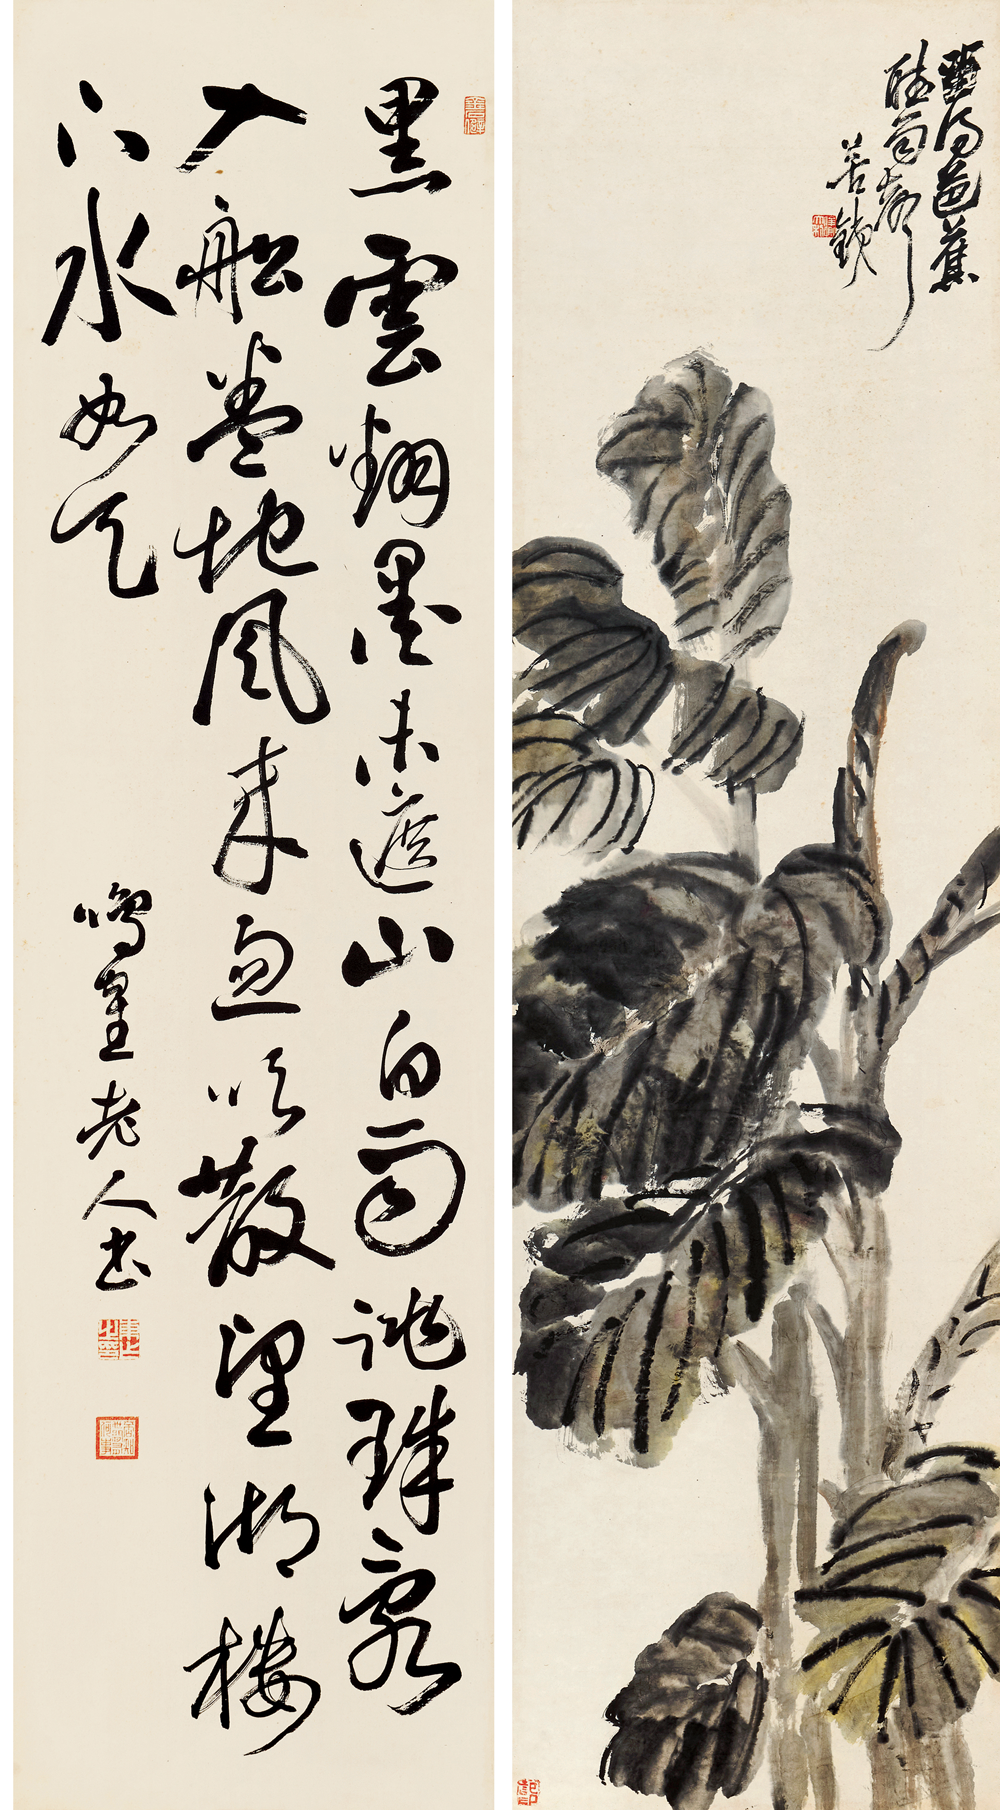 留得芭蕉
聽雨聲
苦鐵
黑雲翻墨未遮山白雨跳珠亂
入舩卷地風來忽吹散望湖樓
下水如天
鳴老人書